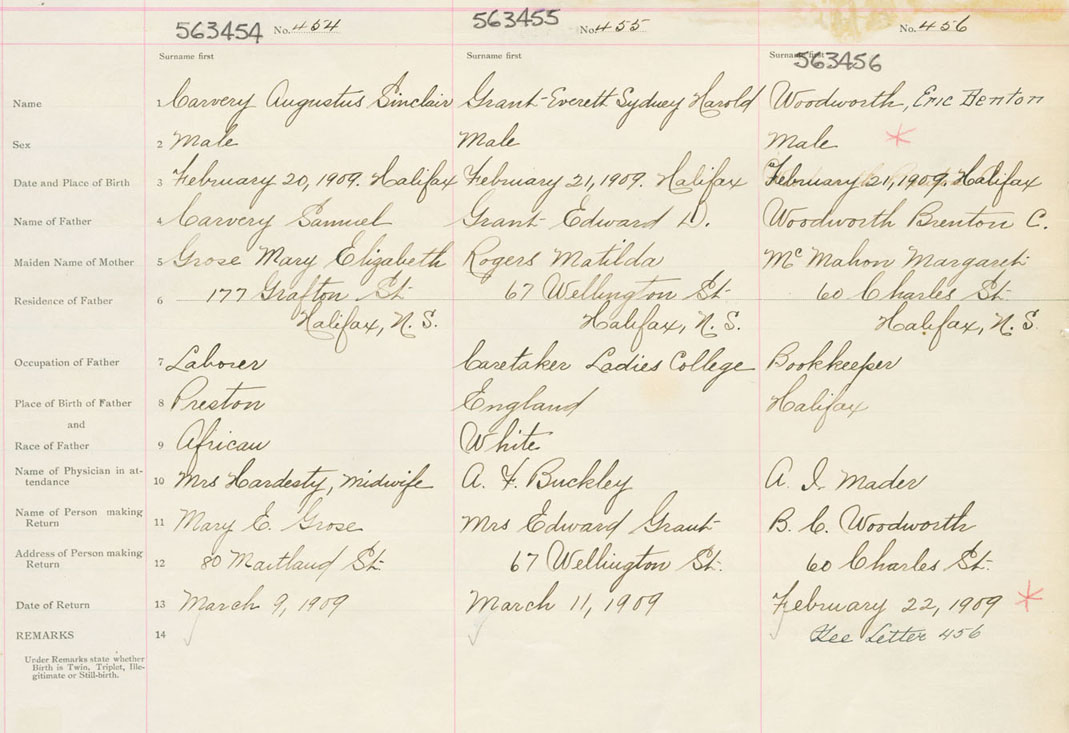 563454 No. 454 563455 No. 455 No. 456
Surname first Surname first Surname first 563456
Name 1 Carvery Augustus Sinclair Grant Everett Sydney Harold Woodworth, Eric Denton
Sex 2 Male Male Male
Date and Place of Birth 3 February 20, 1909. Halifax February 21, 1909. Halifax February 21, 1909. Halifax
Name of Father 4 Carvery Samuel Grant Edward D. Woodworth Brenton C.
Maiden Name of Mother 5 Grose Mary Elizabeth Rogers Matilda Mc Mahon Margaret
Residence of Father 6 177 Grafton St. 67 Wellington St. 60 Charles St.
Halifax, N. S. Halifax, N. S. Halifax, N. S.
Occupation of Father 7 Laborer Caretaker Ladies College Bookkeeper
Place of Birth of Father 8 Preston England Halifax
and
Race of Father 9 African White
Name of Physician in at-
tendance 10 Mrs Hardesty, midwife A. F. Buckley A. I. Mader
Name of Person making
Return 11 Mary E. Grose Mrs Edward Grant B. C. Woodworth
Address of Person making
Return 12 80 Maitland St. 67 Wellington St. 60 Charles St.
Date of Return 13 March 9, 1909 March 11, 1909 February 22, 1909
REMARKS 14 See Letter 456
Under Remarks state whether
Birth is Twin, Triplet, Ille-
gitimate or Still-birth.